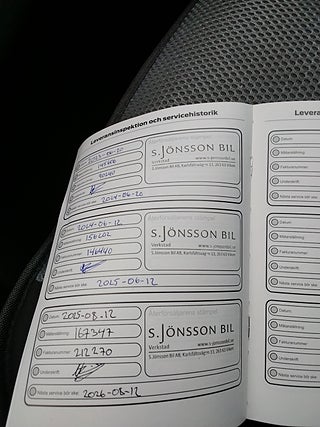 Leveransinspektion och servicehistorik
S.JÖNSSON BIL
Verkstad www.s-jonssonbil.se
S. Jönsson Bil AB, Karlsfältsväg
Nästa service bör ske: 2024-06-20
Datum: 2024-06-12
Återförsäljarens stämpel
Mätarställning: 156202
Fakturanummer: 146440
S.JÖNSSON BIL
Verkstad www.s-jonssonbil.se
S. Jönsson Bil AB, Karlsfältsväg
Underskrift:
Nästa service bör ske: 2025-06-12
Datum: 2025-08-12
Återförsäljarens stämpel
Mätarställning: 167347
Fakturanummer: 212270
S.JÖNSSON BIL
Verkstad www.s-jonssonbil.se
S. Jönsson Bil AB, Karlsfältsväg
Underskrift:
Nästa service bör ske: 2026-08-12
Levera
Datum:
Mätarställning:
Fakturanummer:
Underskrift:
Nästa service bör
Datum:
Mätarställning:
Fakturanummer:
Underskrift:
Nästa service bör ske:
Datum:
Mätarställning:
Fakturanummer:
Underskrift:
Nästa service bör ske: